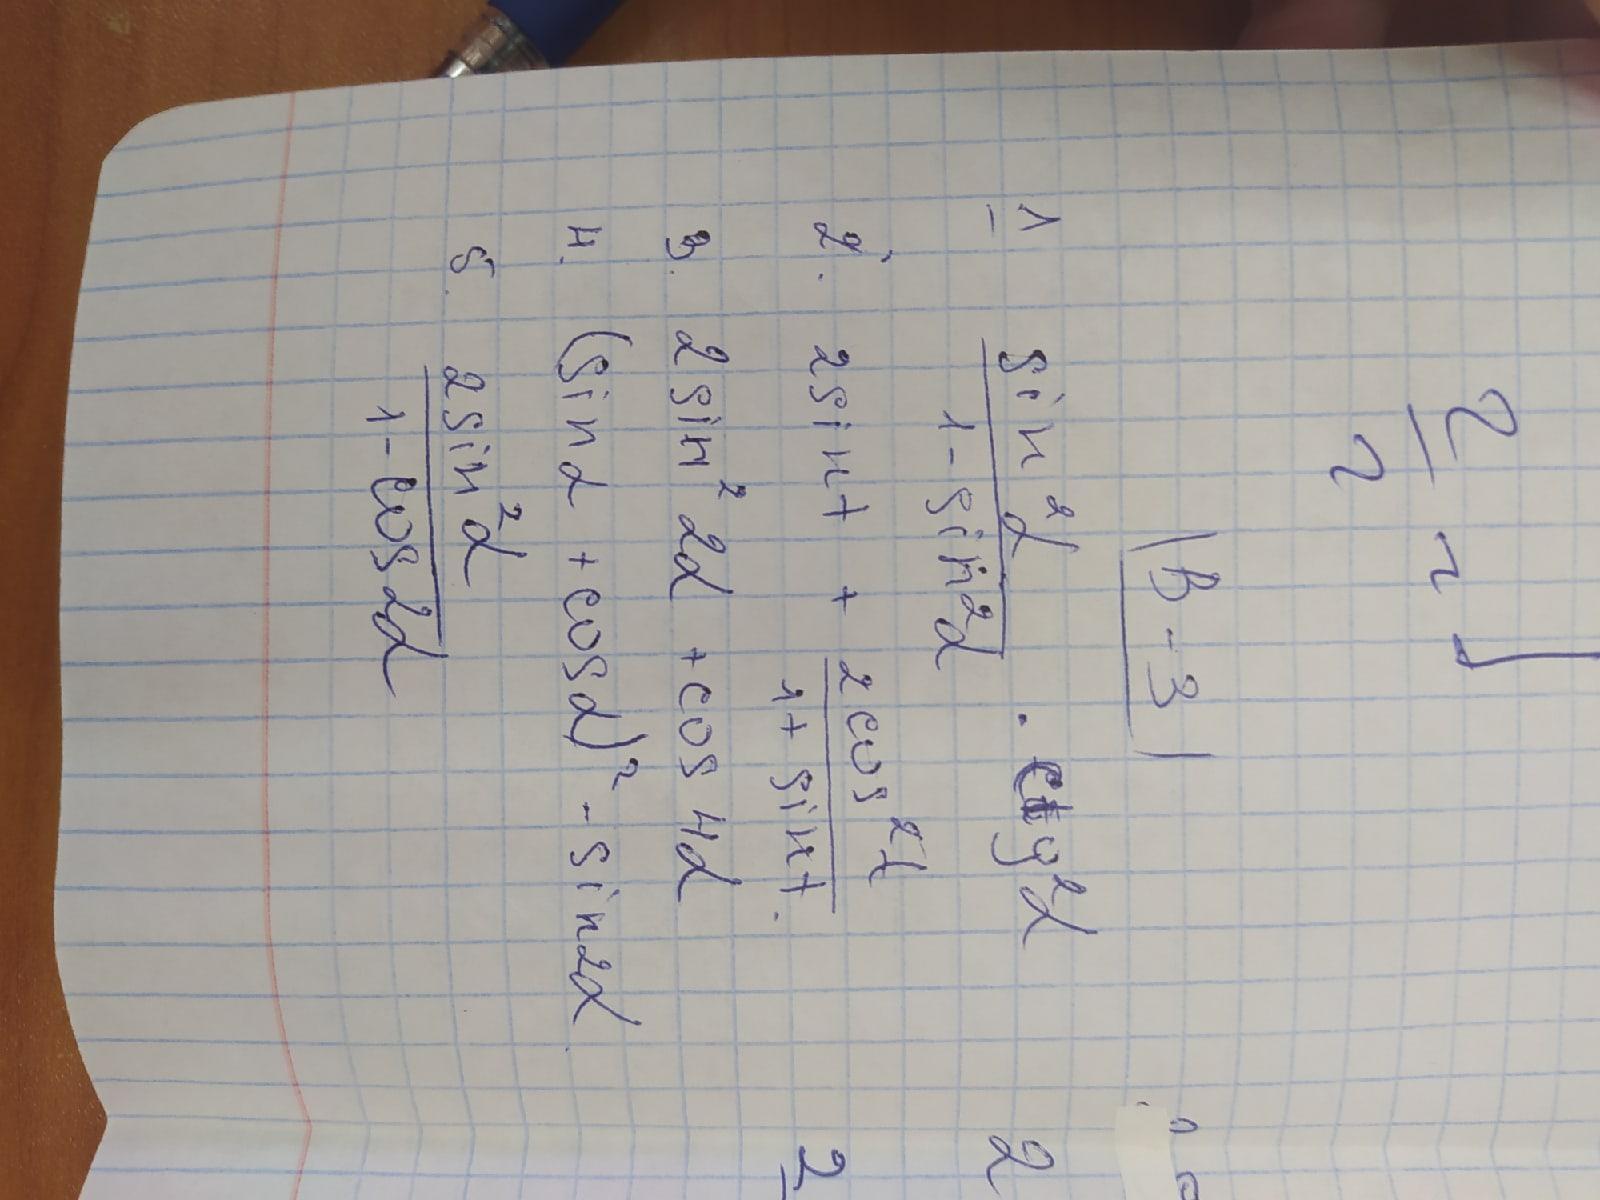 В-3
1 sin²α / 1 - sin²α · ctg²α
2. 2sint + 2cos²t / 1 + sint.
3. 2sin²2α + cos4α
4. (sinα + cosα)² - sin2α
5. 2sin²α / 1 - cos2α
2
2